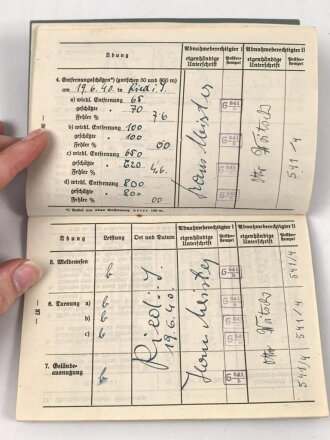 Übung
Abnahmeberechtigter I
eigenhändige Unterschrift
Prüfer-Stempel
Abnahmeberechtigter II
eigenhändige Unterschrift
Prüfer-Stempel
4. Entfernungsschätzen*) (zwischen 50 und 800 m)
am 19.6.40. in Ried i. I.
a) wirkl. Entfernung 65
geschätzte " 70
Fehler % 7,6
b) wirkl. Entfernung 100
geschätzte " 100
Fehler % 00
c) wirkl. Entfernung 650
geschätzte " 620
Fehler % 4,6.
d) wirkl. Entfernung 800
geschätzte " 800
Fehler % 00
Hans Meister
541/4
Übung
Leistung
Ort und Datum
Abnahmeberechtigter I
eigenhändige Unterschrift
Prüfer-Stempel
Abnahmeberechtigter II
eigenhändige Unterschrift
Prüfer-Stempel
5. Meldewesen
6. Tarnung a)
b)
c)
7. Geländeausnutzung
Ried i. I.
19.6.40.
Hans Meister
541/4
541/4
541/4